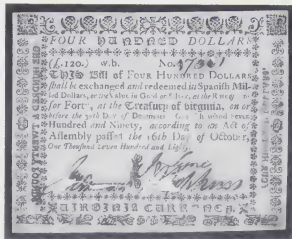 FOUR HUNDRED DOLLARS
(£.120.) w.b. No. 17361
THIS Bill of FOUR HUNDRED DOLLARS
shall be exchanged and redeemed in Spanish Mil-
led Dollars, or the Value in Gold or Silver, at the Rate of
for Forty, at the Treasury of Virginia, on or
before the 30th Day of December One Thousand Seven
Hundred and Ninety, according to an Act of
Assembly passed the 16th Day of October,
One Thousand Seven Hundred and Eighty.
VIRGINIA CURRENCY.
ONE HUNDRED & TWENTY POUNDS